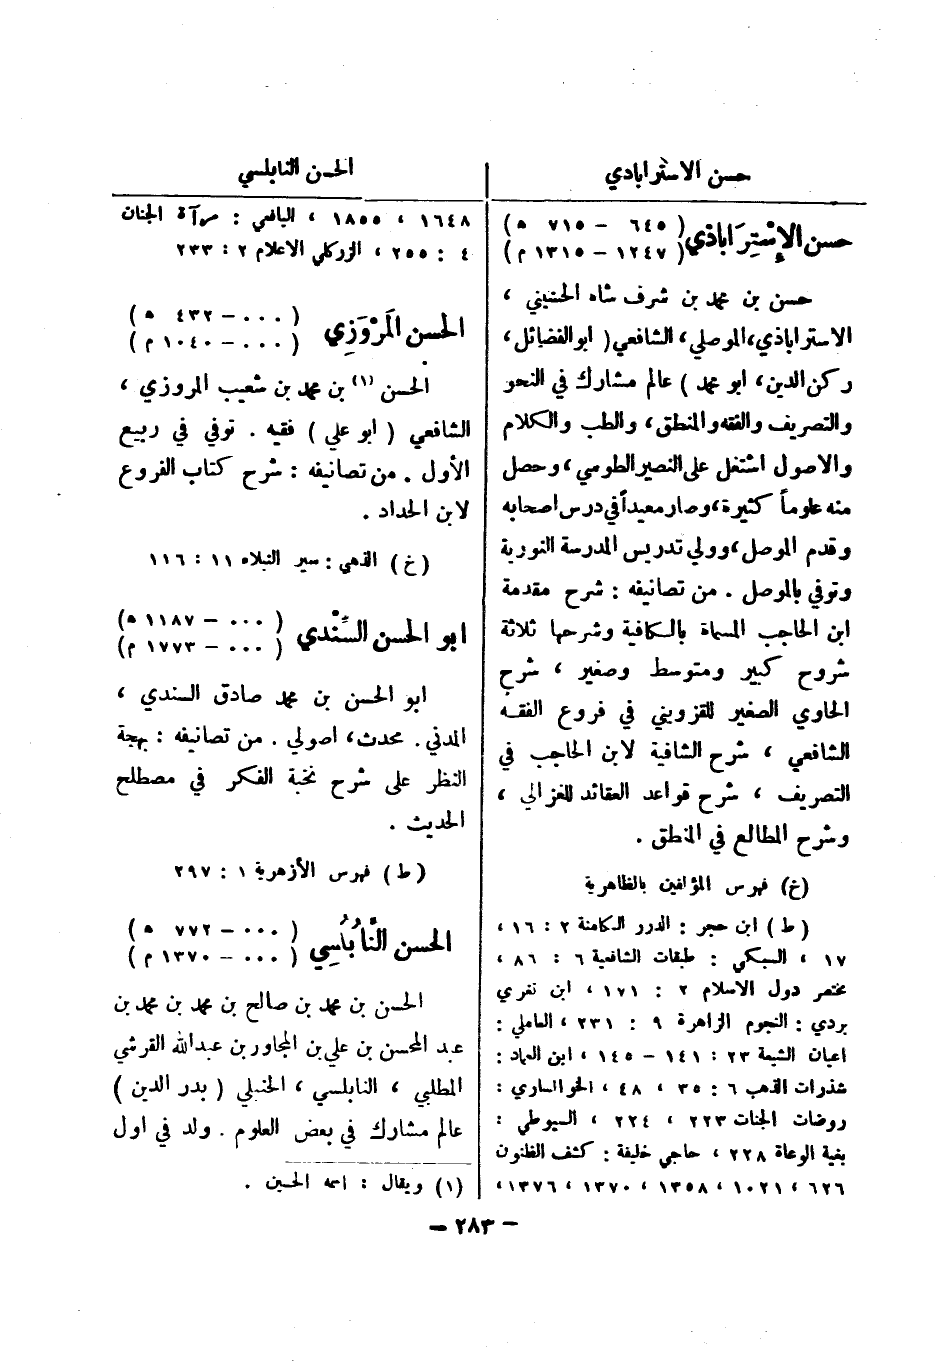 حسن الاسترابادي
حسن الإِسْتِرَاباذي ( ٦٤٥ – ٧١٥ ه )
( ١٢٤٧ – ١٣١٥ م )
حسن بن محمد بن شرف شاه الحسيني ،
الاستراباذي، الموصلي، الشافعي ( ابو الفضائل ،
ركن الدين، ابو محمد ) عالم مشارك في النحو
والتصريف والفقه والمنطق، والطب والكلام
والاصول اشتغل على النصير الطوسي، وحصل
منه علوماً كثيرة، وصار معيداً في درس اصحابه
وقدم الموصل، وولي تدريس المدرسة النورية
وتوفي بالموصل . من تصانيفه : شرح مقدمة
ابن الحاجب المسماة بالكافية وشرحها ثلاثة
شروح كبير ومتوسط وصغير ، شرح
الحاوي الصغير للقزويني في فروع الفقه
الشافعي ، شرح الشافية لابن الحاجب في
التصريف ، شرح قواعد العقائد للغزالي ،
وشرح المطالع في المنطق .
(خ) فهرس المؤلفين بالظاهرية
( ط ) ابن حجر : الدرر الكامنة ٢ : ١٦ ،
١٧ ، السبكي : طبقات الشافعية ٦ : ٨٦ ،
مختصر دول الاسلام ٢ : ١٧١ ، ابن تغري
بردي : النجوم الزاهرة ٩ : ٢٣١ ، العاملي :
اعيان الشيعة ٢٣ : ١٤١ – ١٤٥ ، ابن العماد :
شذرات الذهب ٦ : ٣٥ ، ٤٨ ، الخوانساري :
روضات الجنات ٢٢٣ ، ٢٢٤ ، السيوطي :
بغية الوعاة ٢٢٨ ، حاجي خليفة : كشف الظنون
٦٢٦ ، ١٠٢١ ، ١٣٥٨ ، ١٣٧٠ ، ١٣٧٦ ،
الحسن النابلسي
١٦٤٨ ، ١٨٥٥ ، اليافعي : مرآة الجنان
٤ : ٢٥٥ ، الزركلي الاعلام ٢ : ٢٣٣
الحسن المَرْوَزِي ( ... – ٤٣٢ ه )
( ... – ١٠٤٠ م )
الحسن (١) بن محمد بن شعيب المروزي ،
الشافعي ( ابو علي ) فقيه . توفي في ربيع
الأول . من تصانيفه : شرح كتاب الفروع
لابن الحداد .
(خ) الذهبي : سير النبلاء ١١ : ١١٦
ابو الحسن السِّنْدي ( ... – ١١٨٧ ه )
( ... – ١٧٧٣ م )
ابو الحسن بن محمد صادق السندي ،
المدني . محدث، اصولي . من تصانيفه : بهجة
النظر على شرح نخبة الفكر في مصطلح
الحديث .
( ط ) فهرس الأزهرية ١ : ٢٩٧
الحسن النَّابُلُسِي ( ... – ٧٧٢ ه )
( ... – ١٣٧٠ م )
الحسن بن محمد بن صالح بن محمد بن محمد بن
عبد المحسن بن علي بن المجاور بن عبدالله القرشي
المطلبي ، النابلسي ، الحنبلي ( بدر الدين )
عالم مشارك في بعض العلوم . ولد في اول
(١) ويقال : اسمه الحسين .
– ٢٨٣ –